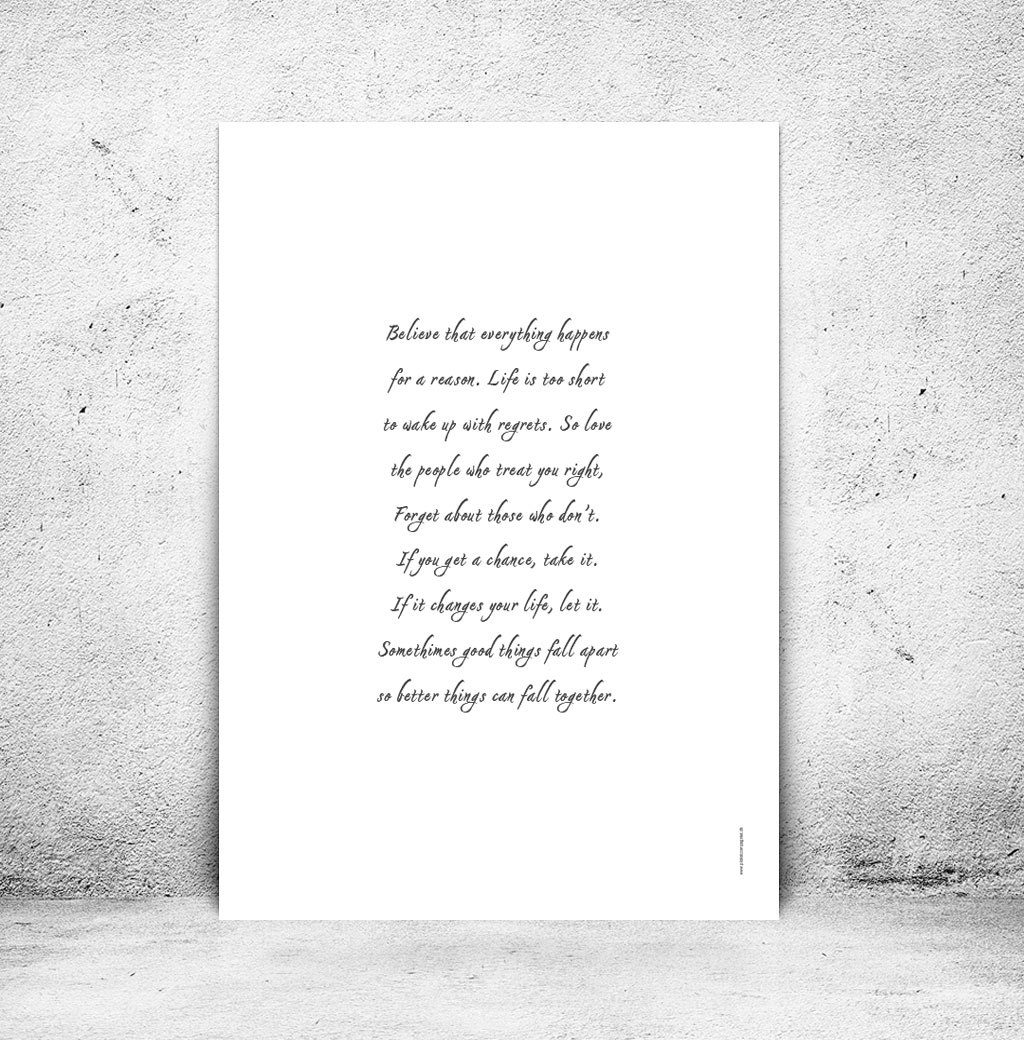 Believe that everything happens
for a reason. Life is too short
to wake up with regrets. So love
the people who treat you right,
Forget about those who don't.
If you get a chance, take it.
If it changes your life, let it.
Somethimes good things fall apart
so better things can fall together.